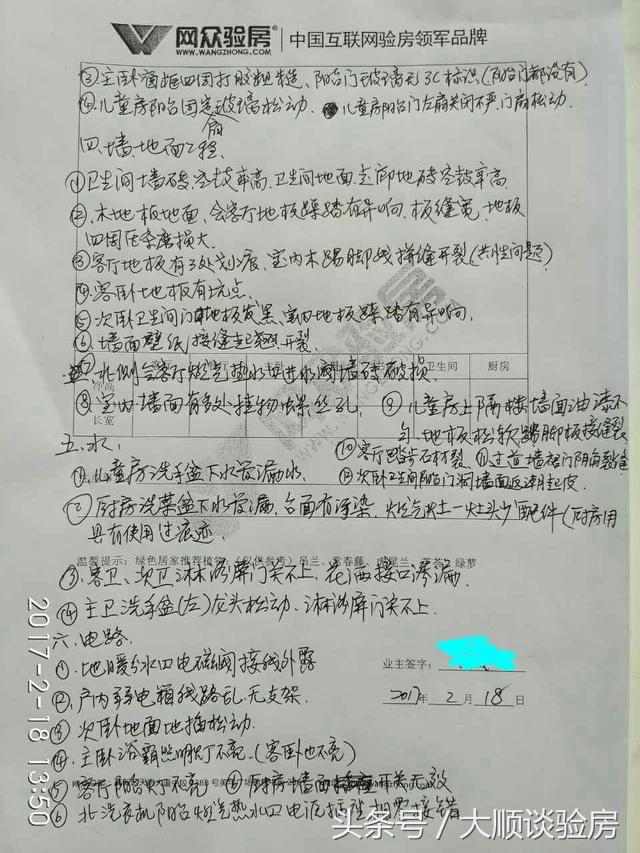 网众验房
WWW.WANGZHONG.COM
中国互联网验房领军品牌
③主卧窗框四周打胶粗糙、阳台门玻璃无3C标识(阳台门都没有)
④儿童房阳台固定玻璃松动. 儿童房阳台门左扇关闭不严,门扇松动.
扇
四.墙.地面工程
①卫生间墙砖.空鼓率高.卫生间地面.走廊地砖空鼓率高.
②.木地板地面、会客厅地板踩踏有异响.板缝宽,地板
四周压条磨损大.
③客厅地板有3处划痕,室内木踢脚线拼缝开裂(共性问题)
④.客卧地板有坑点
⑤次卧卫生间门口地板发黑,室内地板踩踏有异响.
⑥墙面壁纸接缝起翘开裂
卫生间
厨房
⑦北侧会客厅燃气热水口进水阀墙砖破损.
⑧室内墙面有多处挂物
⑨儿童房上隔楼墙面油漆不
匀.地板松软.踢脚板接缝裂
长宽
五.水.
⑩客厅踏步石材裂.
①儿童房洗手盆下水管漏水.
⑫次卧卫生间阳台门洞墙面返潮起皮
②厨房洗菜盆下水管漏,台面有污染,燃气灶一灶头少配件(厨房用
具有使用过痕迹
温馨提示:绿色居家推荐植物:(仅供参考)吊兰、常春藤、虎尾兰、芦荟、绿萝
③.客卫、次卫淋浴屏门关不上,花洒接口渗漏
④主卫洗手盆(左)龙头松动、淋浴屏门关不上.
六.电路
业主签字:
①.地暖分水口电磁阀接线外露
2017年 2月 18日
②.户内弱电箱线路乱.无支架.
③次卧地面地插松动.
④.主卧浴霸照明灯不亮.(客卧也不亮)
⑤客厅阳台灯不亮
厨房墙面插座开关无效
⑥北洗衣机阳台燃气热水口电源插座相零接错
2017-2-18 13:50
头条号/大顺谈验房